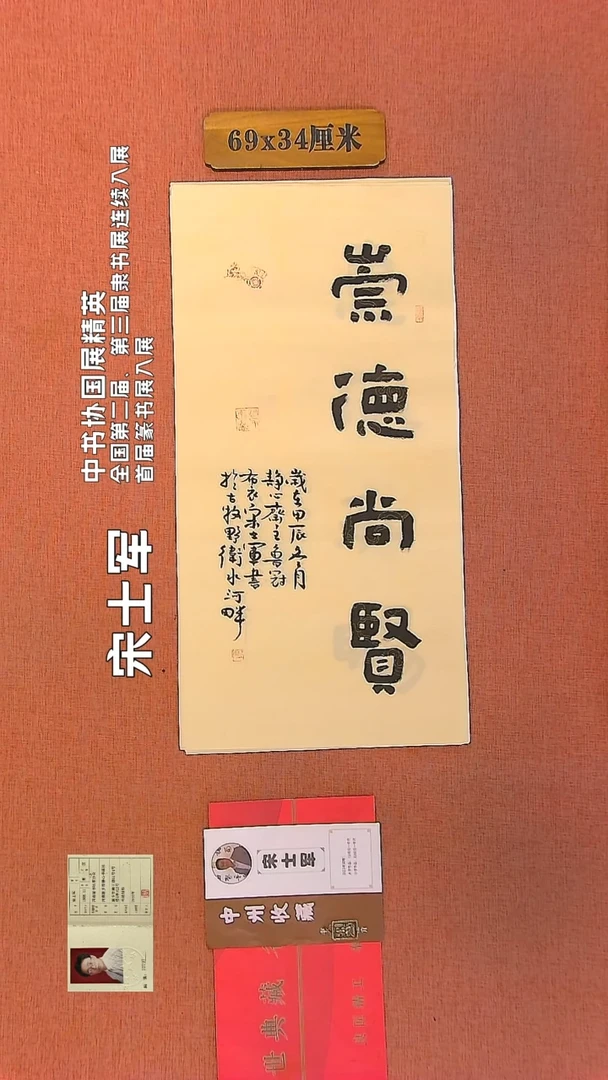 69x34厘米
中书协国展精英
全国第二届、第三届隶书展连续入展
首届篆书展入展
宋士军
崇德尚賢
歲在甲辰冬月
靜心齋主魯冠
布衣宋士軍書
於古牧野衛水河畔
宋士军
中州收藏
世典藏